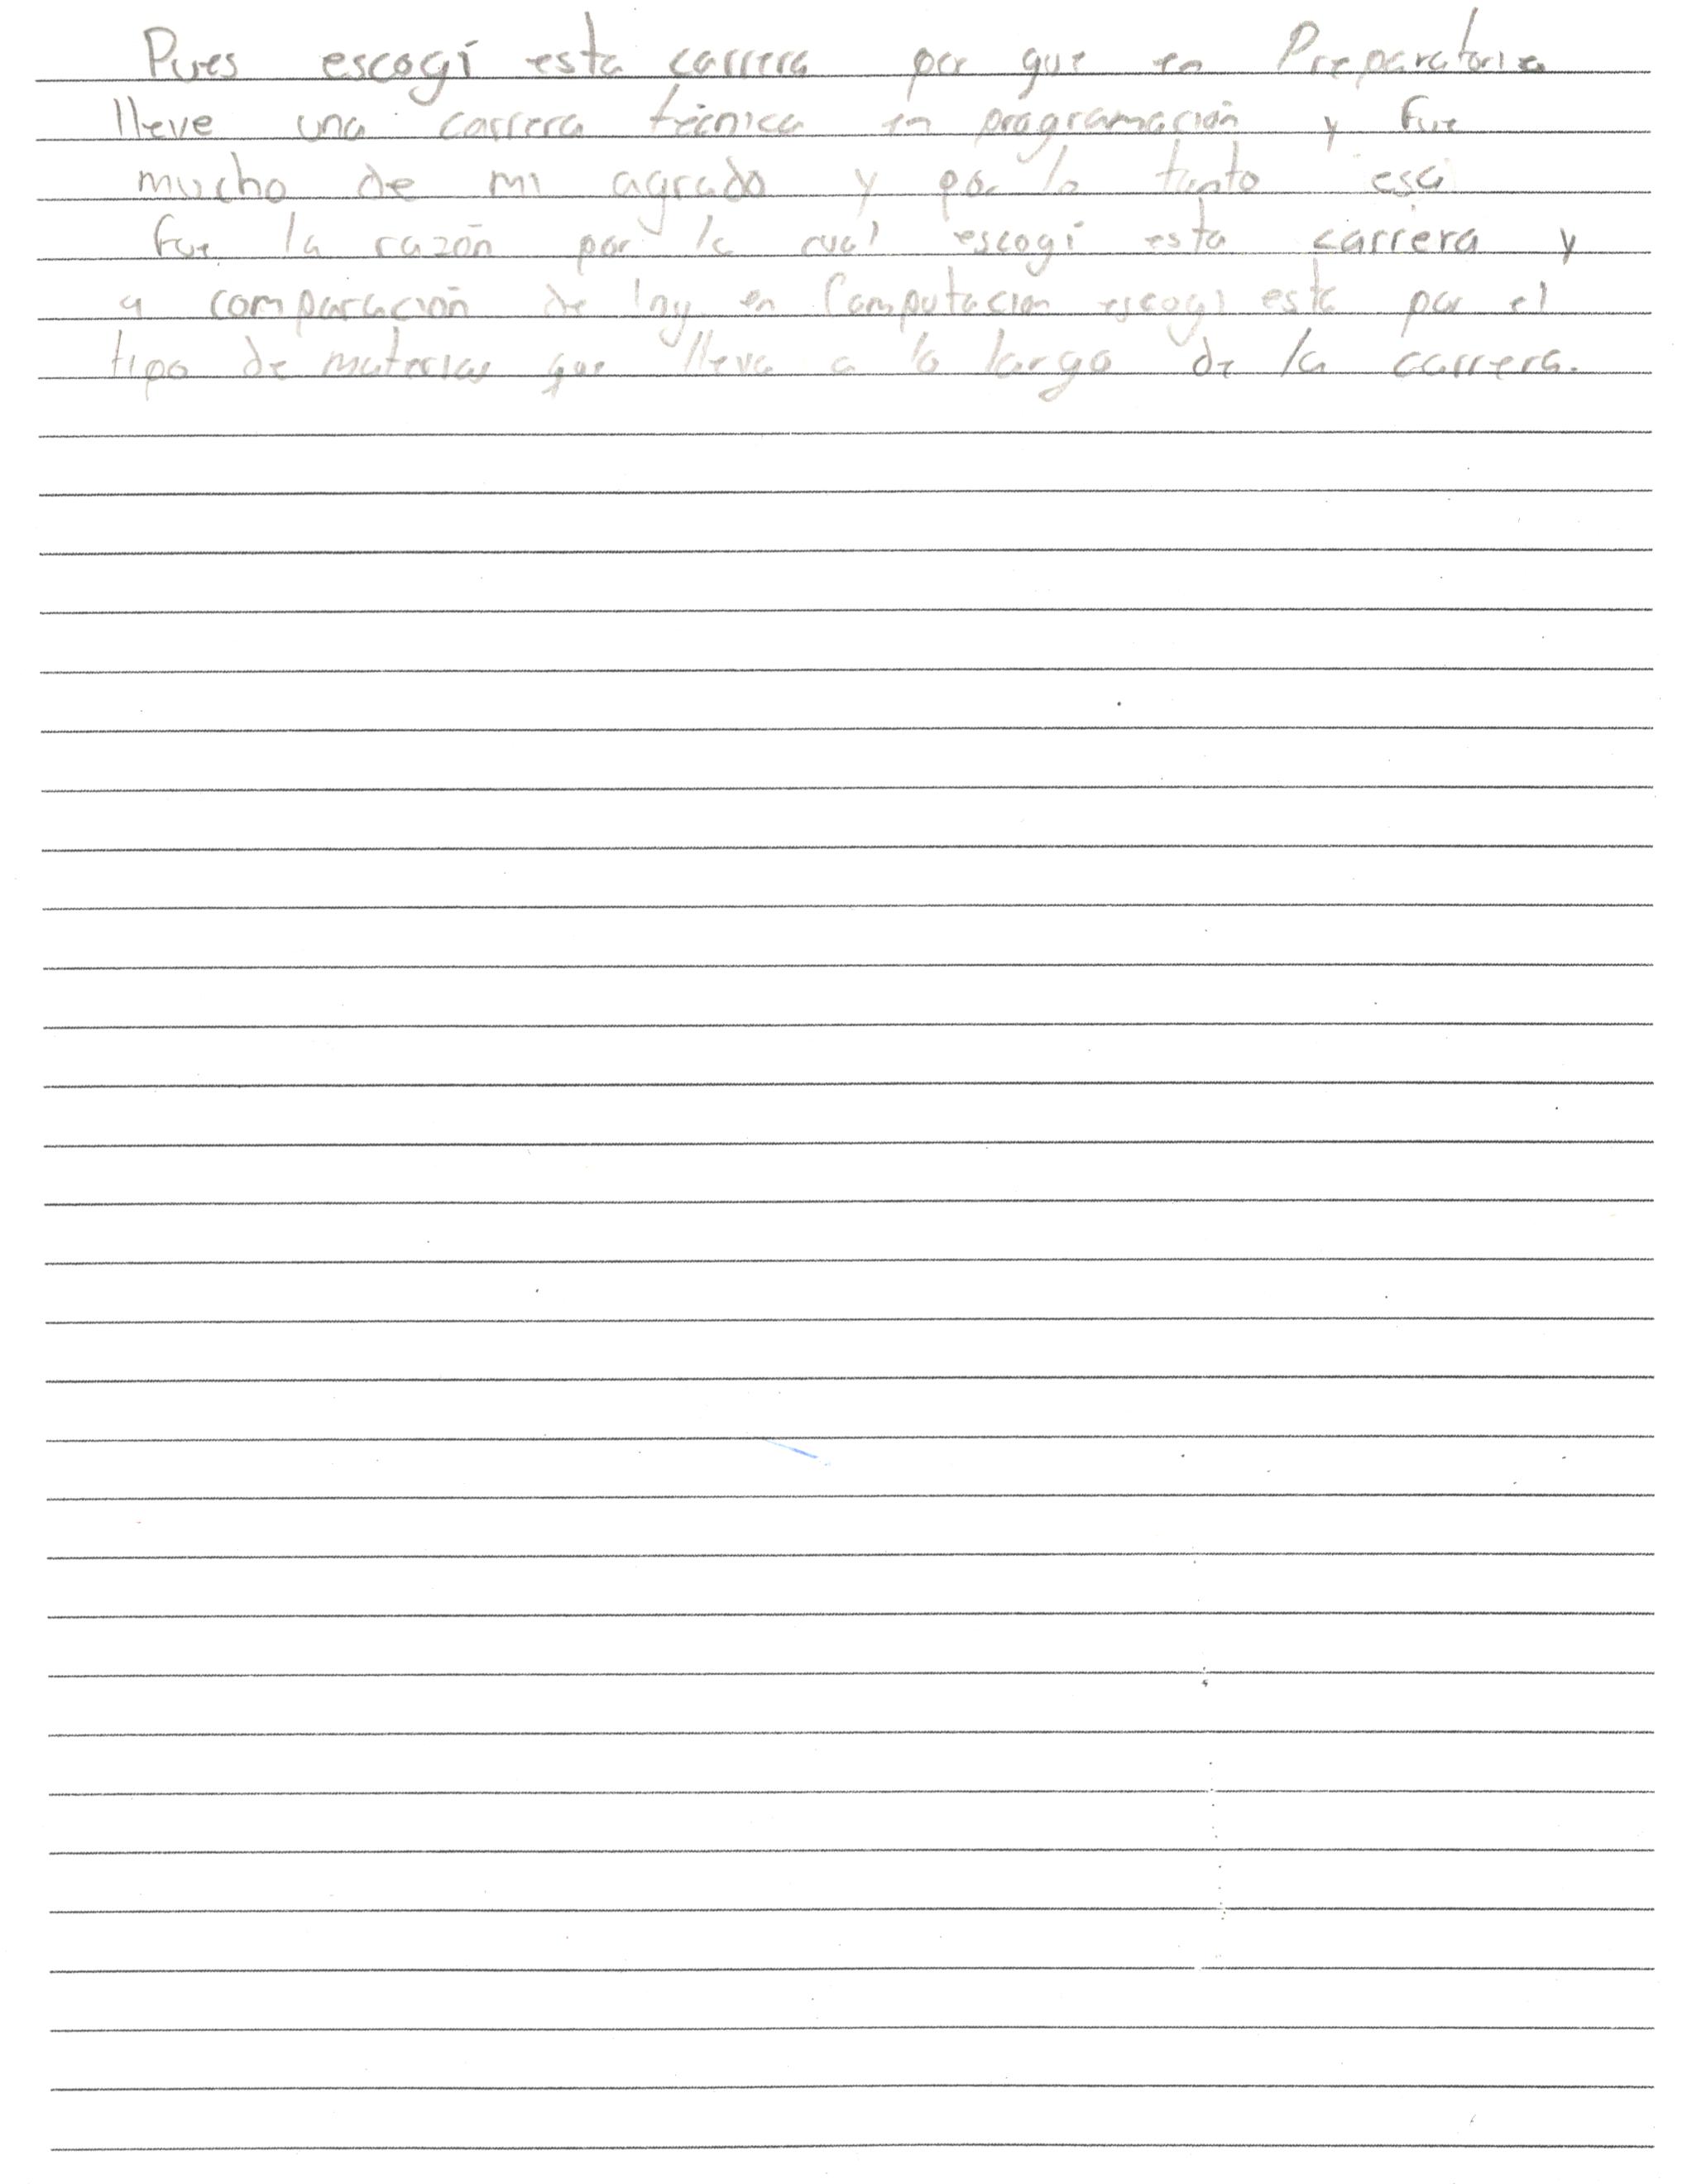 Pues escogí esta carrera por que en Preparatoria
lleve una carrera técnica en programación y fue
mucho de mi agrado y por lo tanto esa
fue la razón por la cual escogí esta carrera y
a comparación de Ing. en Computacion escogi esta por el
tipo de materias que lleva a lo largo de la carrera.